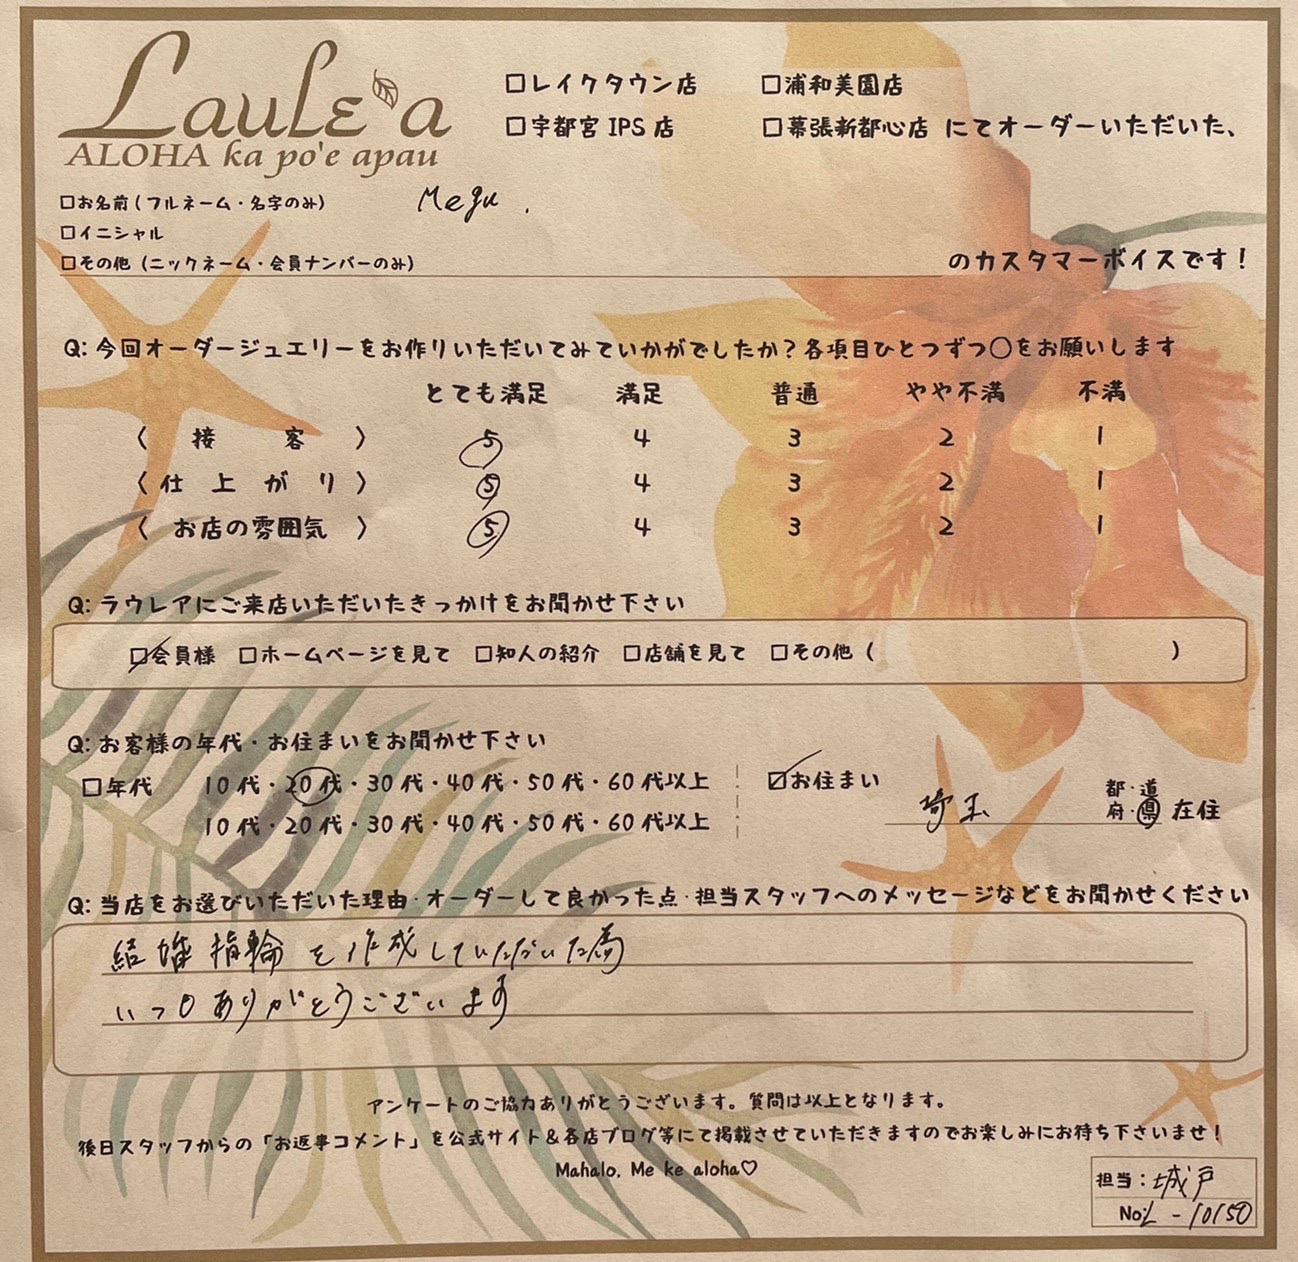 Laule'a
ALOHA ka po'e apau
□レイクタウン店 □浦和美園店
□宇都宮 IPS 店 □幕張新都心店 にてオーダーいただいた、
□お名前(フルネーム・名字のみ) Megu.
□イニシャル
□その他(ニックネーム・会員ナンバーのみ) のカスタマーボイスです!
Q:今回オーダージュエリーをお作りいただいてみていかがでしたか?各項目ひとつずつ〇をお願いします
とても満足 満足 普通 やや不満 不満
〈 接 客 〉 5 4 3 2 1
〈仕上がり〉 5 4 3 2 1
〈 お店の雰囲気 〉 5 4 3 2 1
Q:ラウレアにご来店いただいたきっかけをお聞かせ下さい
☑会員様 □ホームページを見て □知人の紹介 □店舗を見て □その他( )
Q:お客様の年代・お住まいをお聞かせ下さい
□年代 10代・20代・30代・40代・50代・60代以上 ☑お住まい 埼玉 都・道
10代・20代・30代・40代・50代・60代以上 府・県 在住
Q:当店をお選びいただいた理由・オーダーして良かった点・担当スタッフへのメッセージなどをお聞かせください
結婚指輪を作成していただいた為
いつもありがとうございます
アンケートのご協力ありがとうございます。質問は以上となります。
後日スタッフからの「お返事コメント」を公式サイト&各店ブログ等にて掲載させていただきますのでお楽しみにお待ち下さいませ!
Mahalo. Me ke aloha♡
担当:城戸
No:L-10150